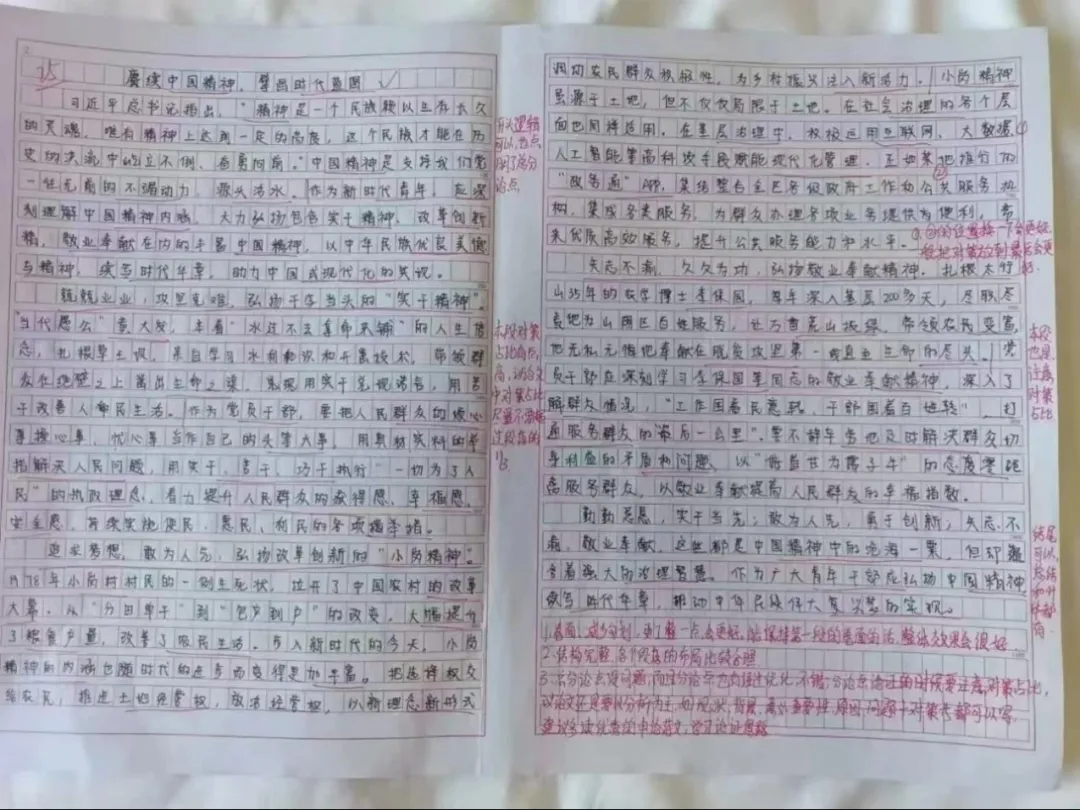 赓续中国精神,擘画时代蓝图
习近平总书记指出,"精神是一个民族赖以生存长久
的灵魂,唯有精神上达到一定的高度,这个民族才能在历
史的洪流中屹立不倒、奋勇向前。"中国精神是支持我们党
一往无前的不竭动力、源头活水。作为新时代青年,应深
刻理解中国精神内涵,大力弘扬包含实干精神、改革创新
精、敬业奉献在内的丰富中国精神,以中华民族优良美德
与精神,续写时代华章,助力中国式现代化的实现。
兢兢业业,攻坚克难,弘扬干字当头的"实干精神"。
"当代愚公"黄大发,本着"水过不去拿命来铺"的人生信
念,扎根草王坝,亲自学习水利知识和开凿技术,带领群
众在绝壁之上凿出生命之渠,兑现用实干兑现诺言,用苦
干改善人命民生活。作为党员干部,要把人民群众的烦心
事操心事、忧心事当作自己的头等大事,用真材实料的举
措解决人民问题,用实干、苦干、巧干执行"一切为了人
民"的执政理念,着力提升人民群众的获得感、幸福感、
安全感,持续实施便民、惠民、利民的各项举措。
追求梦想,敢为人先,弘扬改革创新的"小岗精神"。
1978年小岗村村民的一则生死状,拉开了中国农村的改革
大幕,从"分田单干"到"包产到户"的改变,大幅提升
了粮食产量,改善了农民生活。步入新时代的今天,小岗
精神的内涵也随时代的进步而变得更加丰富。把选择权交
给农民,推进土地经营权,放活经营权,以新理念新形式
调动农民群众积极性,为乡村振兴注入新活力。小岗精神
虽源于土地,但不仅仅局限于土地。在社会治理的各个层
面也同样适用。在基层治理中,积极运用互联网、大数据、
人工智能等高科技手段赋能现代化管理,正如某地推行的
"政务通"APP,集结整合全区各级政府工作和公共服务机
构,集成各类服务,为群众办理各项业务提供方便利,带
来优质高效服务,提升公共服务能力和水平。
矢志不渝,久久为功,弘扬敬业奉献精神。扎根太行
山35年的农学博士李保国,每年深入基层200多天,尽职尽
责地为山区百姓服务,让万亩荒山披绿,带领农民变富,
他无私无悔地奉献在脱贫攻坚第一线直至生命的尽头。党
员干部应深刻学习李保国等同志的敬业奉献精神,深入了
解群众情况,"工作围着民意转,干部围着百姓转",打
通服务群众的"最后一公里",要不辞辛劳地及时解决群众切
身利益的矛盾和问题,以"俯首甘为孺子牛"的态度零距
离服务群众,以敬业奉献提高人民群众的幸福指数。
勤勤恳恳,实干当先;敢为人先,勇于创新;矢志不
渝、敬业奉献,这些都是中国精神中的沧海一粟,但却蕴
含着强大的治理智慧。作为广大青年干部应弘扬中国精神
续写时代华章,推动中华民族伟大复兴梦的实现。
开头逻辑
可以,也点
明了总分
论点
本段对策
占比偏高,议论文
中对策占比
尽量不要超
过段落的
1/3
①②的位置换一下会更好,
一般把对策放到最后会更好。
本段
也是,
注意
对策
占比
结尾
可以,
总结
和升
华都
有
2.结构完整,各个段落的布局比较合理